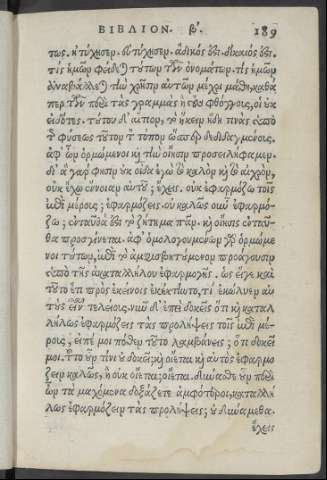 ΒΙΒΛΙΟΝ. β'. 189
τως. ἠτύχησεν. εὐτύχησεν. ἄδικός ἐστι. δίκαιός ἐστι.
τίς ἡμῶν φείδεται τούτων τῶν ὀνομάτων. τίς ἡμῶν
ἀναβάλλεται τὴν χρῆσιν αὐτῶν μέχρι μάθῃ, καθά
περ τῶν περὶ τὰς γραμμὰς ἢ τοὺς φθόγγους, οἱ οὐκ
εἰδότες. τούτου δ' αἴτιον, τὸ ἥκειν ἤδη τινὰς ὑπὸ
τῆς φύσεως τοῦτον τὸν τόπον ὥσπερ δεδιδαγμένους,
ἀφ' ὧν ὁρμώμενοι καὶ τὴν οἴησιν προσειλήφαμεν.
διὰ γὰρ φησὶν οὐκ οἶδα ἐγὼ τὸ καλὸν καὶ τὸ αἰσχρόν,
οὐκ ἔχω ἔννοιαν αὐτοῦ; ἔχεις. οὐκ ἐφαρμόζω τοῖς
ἐπὶ μέρους; ἐφαρμόζεις. οὐ καλῶς οὖν ἐφαρμό-
ζω; ἐνταῦθά ἐστι τὸ ζήτημα πᾶν. καὶ οἴησις ἐνταῦ-
θα προσγίνεται. ἀφ' ὁμολογουμένων γὰρ ὁρμώμε
νοι τούτων, ἐπὶ τὸ ἀμφισβητούμενον προάγουσιν
ὑπὸ τῆς ἀκαταλλήλου ἐφαρμογῆς. ὡς εἴγε καὶ
τοῦτο ἔτι πρὸς ἐκείνοις ἐκέκτηντο, τί ἐκώλυεν αὐ
τοὺς εἶναι τελείους. νῦν δ' ἐπεὶ δοκεῖς ὅτι καὶ καταλ
λήλως ἐφαρμόζεις τὰς προλήψεις τοῖς ἐπὶ μέ-
ρους, εἰπέ μοι πόθεν τοῦτο λαμβάνεις; ὅτι δοκεῖ
μοι. τοῦτο οὖν τινι οὐ δοκεῖ; καὶ οἴεται καὶ αὐτὸς ἐφαρμό
ζειν καλῶς, ἢ οὐκ οἴεται; οἴεται. δύνασθε οὖν περὶ
ὧν τὰ μαχόμενα δοξάζετε ἀμφότεροι, καταλλή
λως ἐφαρμόζειν τὰς προλήψεις; οὐ δυνάμεθα.
ἔχεις